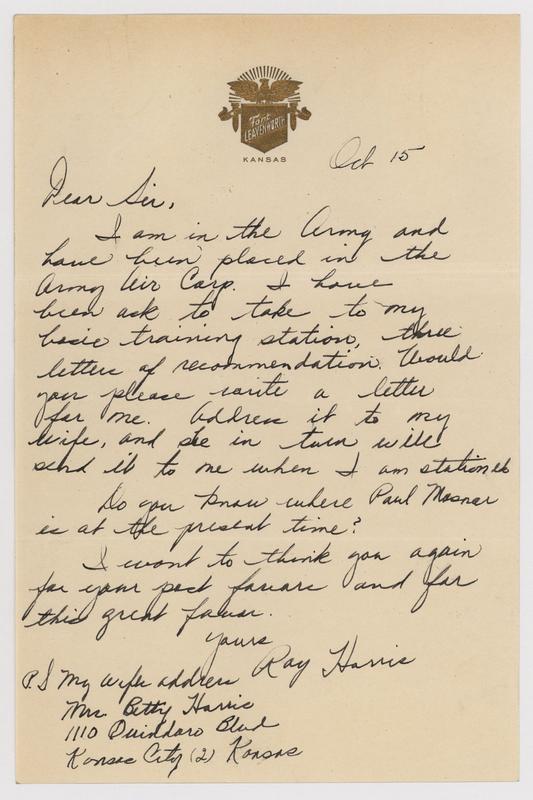 Fort
LEAVENWORTH
KANSAS
Oct 15
Dear Sir,
I am in the Army and
have been placed in the
Army Air Corp. I have
been ask to take to my
basic training station, three
letters of recommendation. Would
you please write a letter
for me. Address it to my
wife, and she in turn will
send it to me when I am stationed
Do you know where Paul Mosner
is at the present time?
I want to think you again
for your past favors and for
this great favor.
Yours
Ray Harris
P.S My wife address
Mrs. Betty Harris
1110 Quindaro Blvd
Kansas City (2) Kansas